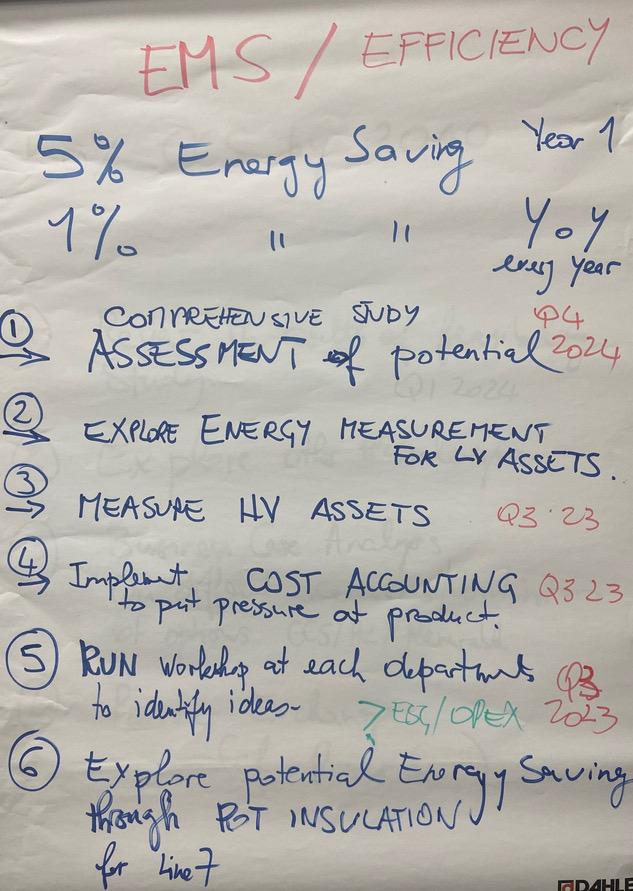 EMS / EFFICIENCY
5% Energy Saving Year 1
1% " " Y.o.Y
every year
1 COMPREHENSIVE STUDY Q4
ASSESSMENT of potential 2024
2 EXPLORE ENERGY MEASUREMENT
FOR LV ASSETS.
3 MEASURE HV ASSETS Q3 · 23
4 Implement COST ACCOUNTING Q3 23
to put pressure at product.
5 RUN workshop at each departments Q3
to identify ideas- > ESG/OPEX 2023
6 Explore potential Energy Saving
through POT INSULATION
for Line 7
DAHLE